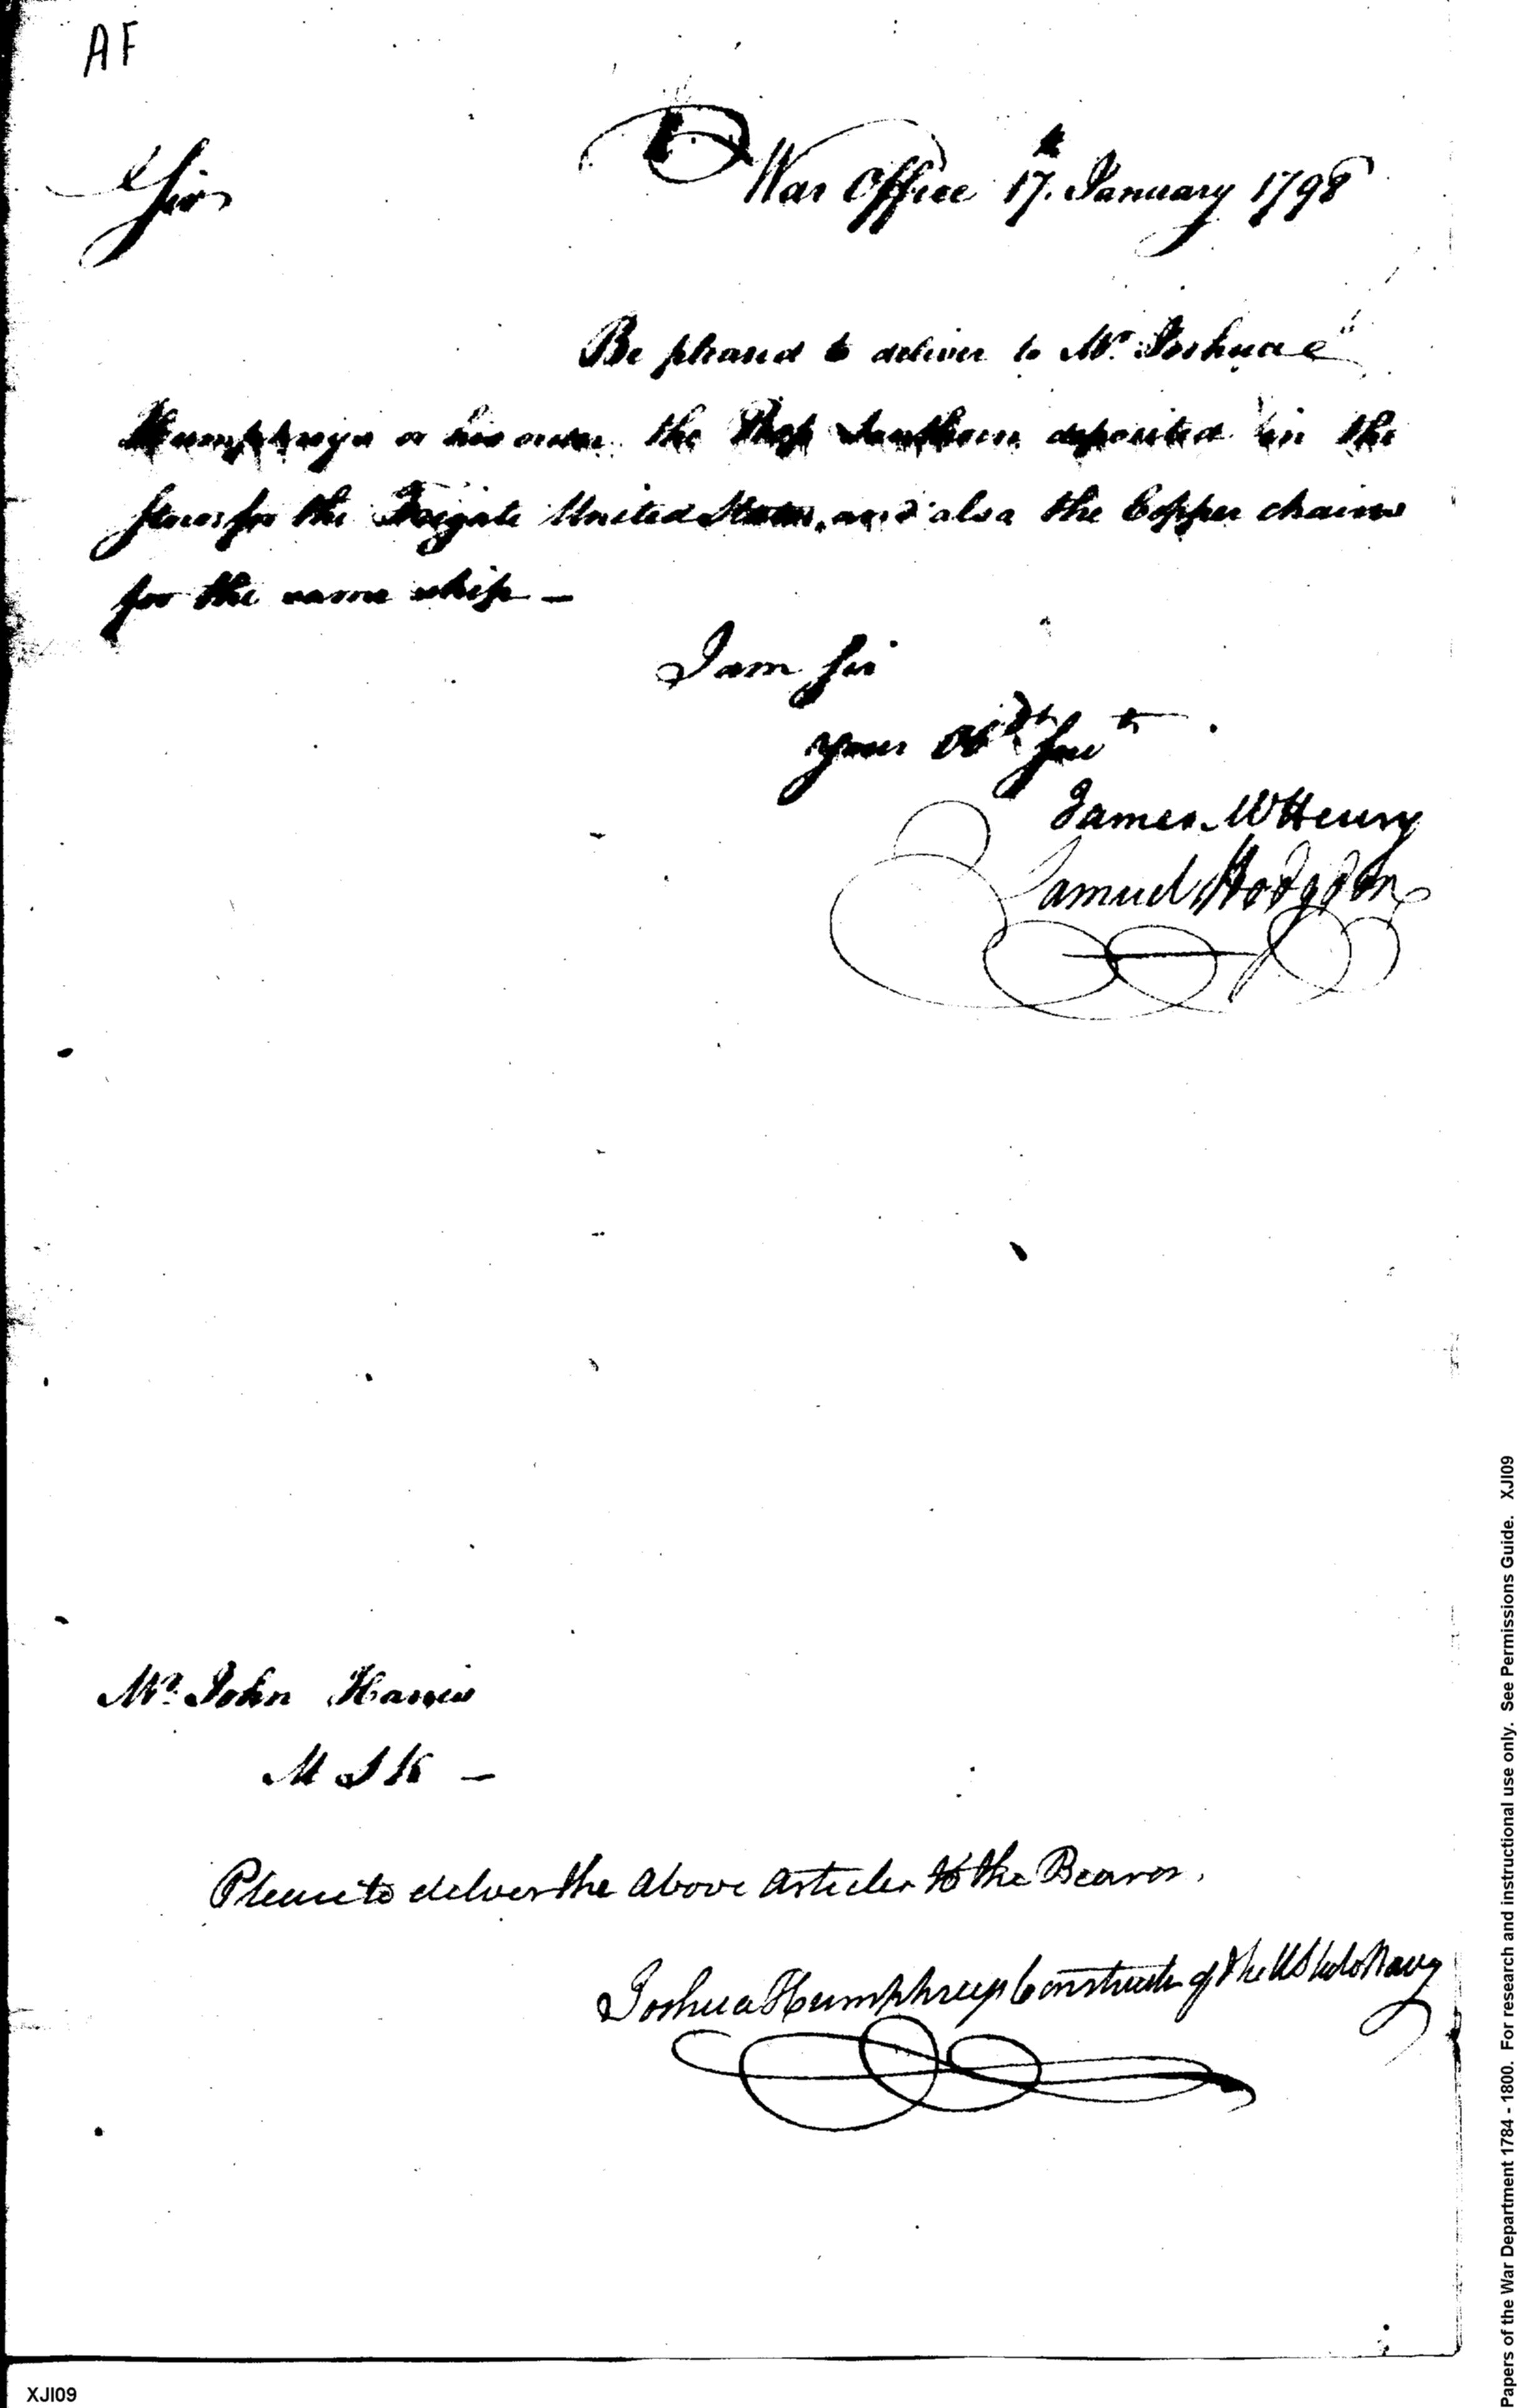 AF
War Office 17th January 1798
Sir
Be pleased to deliver to Mr. Joshua
Humphreys or his order the Poop Lanthern deposited in the
stores for the Frigate United States, and also the Copper chains
for the same ship —
I am Sir
your Obdt. Servt.
James McHenry
Samuel Hodgdon
Mr. John Harris
M S K —
Please to deliver the above articles to the Bearer.
Joshua Humphreys Constructor of the U States Navy
XJI09
Papers of the War Department 1784 - 1800. For research and instructional use only. See Permissions Guide. XJI09